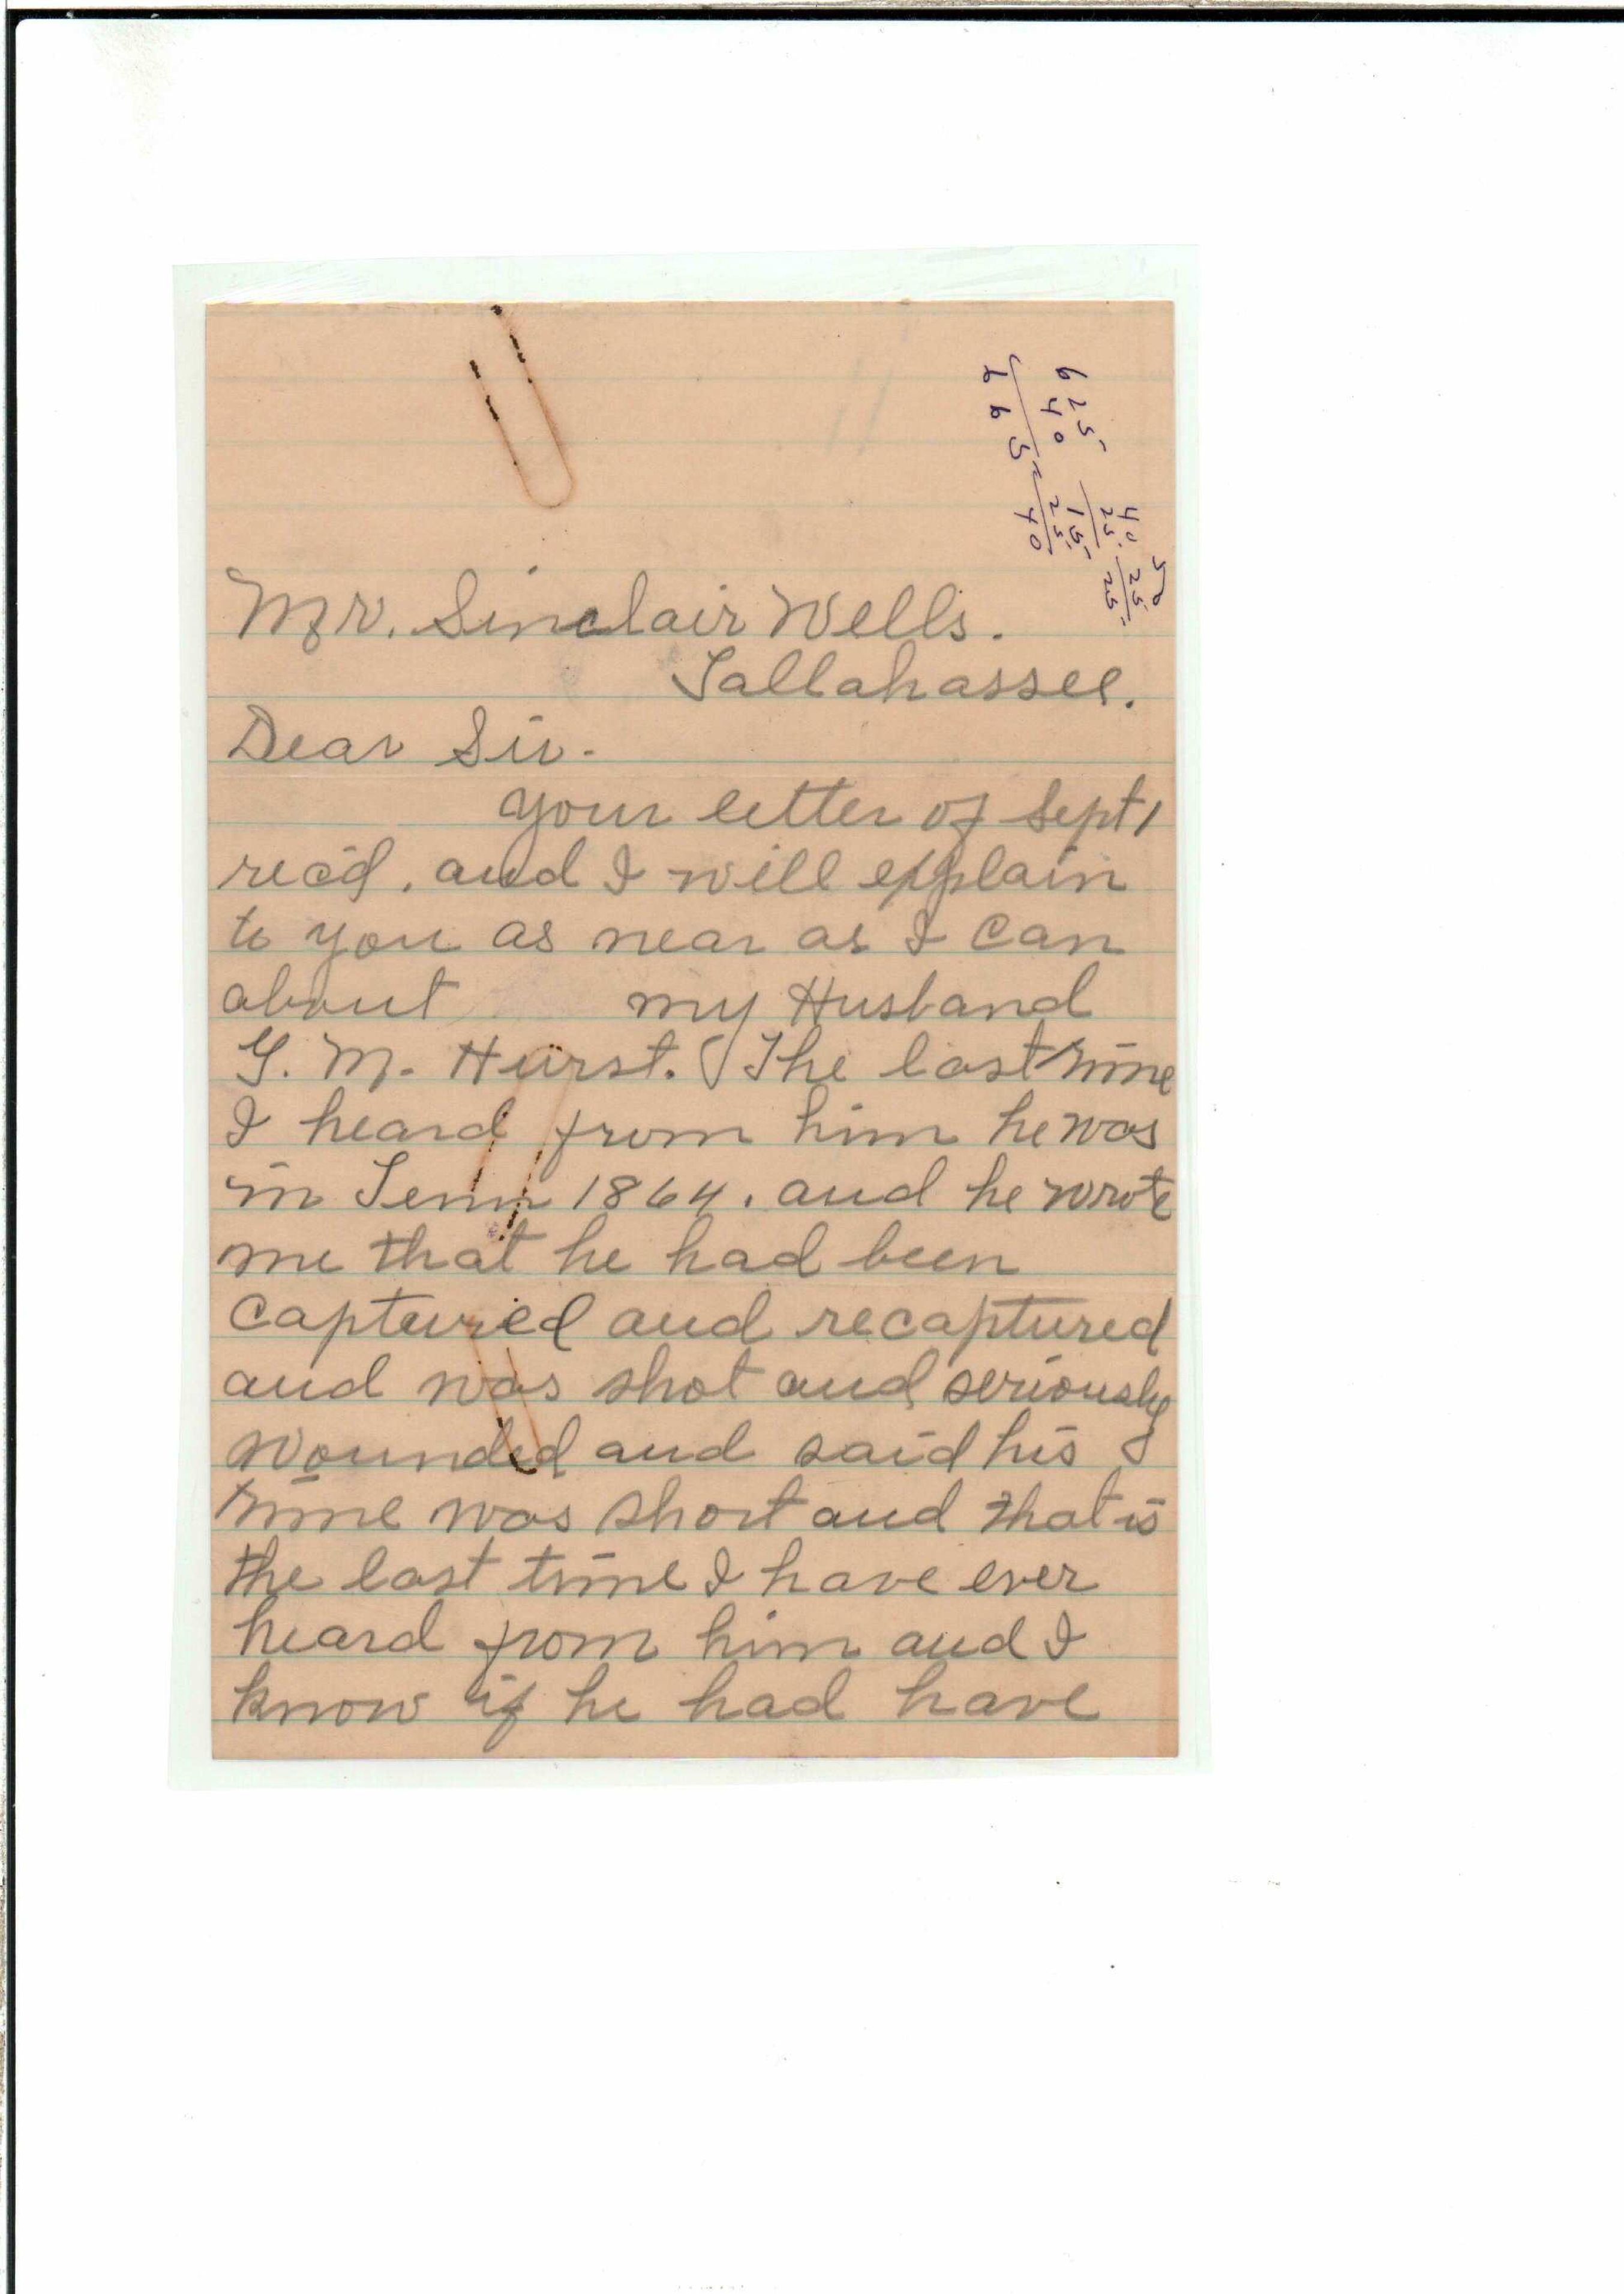 625
40
665
15
25
40
40
25
50
25
25
Mr. Sinclair Wells.
Tallahassee.
Dear Sir.
your letter of Sept 1
rec'd. and I will explain
to you as near as I can
about my Husband
G. M. Hurst. The last time
I heard from him he was
in Tenn 1864. and he wrote
me that he had been
captured and recaptured
and was shot and seriously
wounded and said his
time was short and that is
the last time I have ever
heard from him and I
know if he had have